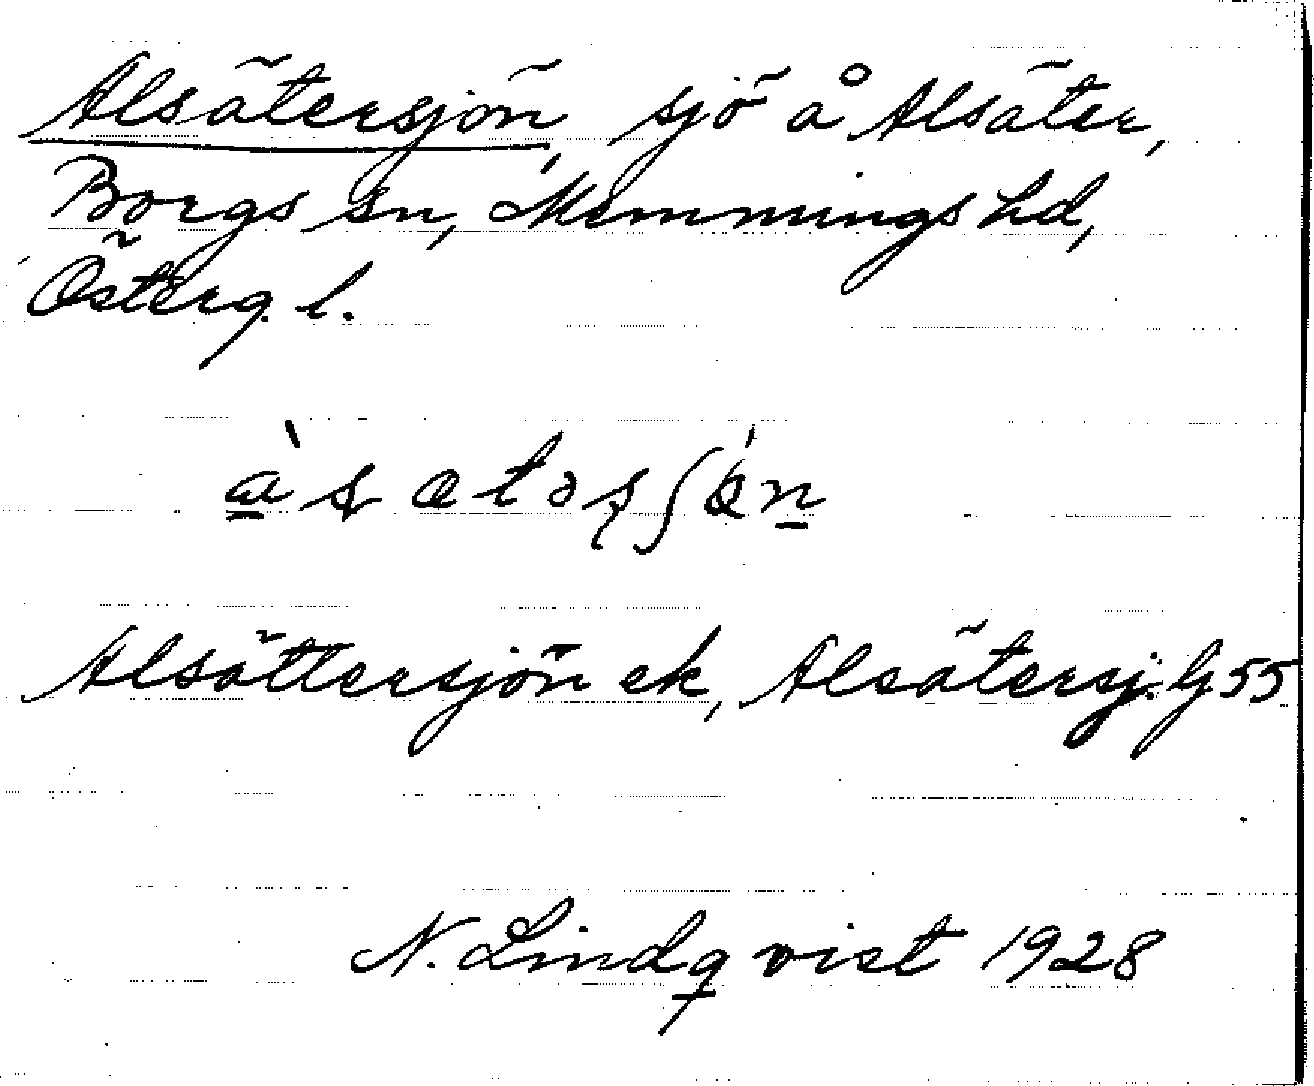 Alsätersjön, sjö å Alsäter,
Borgs sn, Memmings hd,
Österg. l.
Alsättersjön ek, Alsätersj. G 55
N. Lindqvist 1928